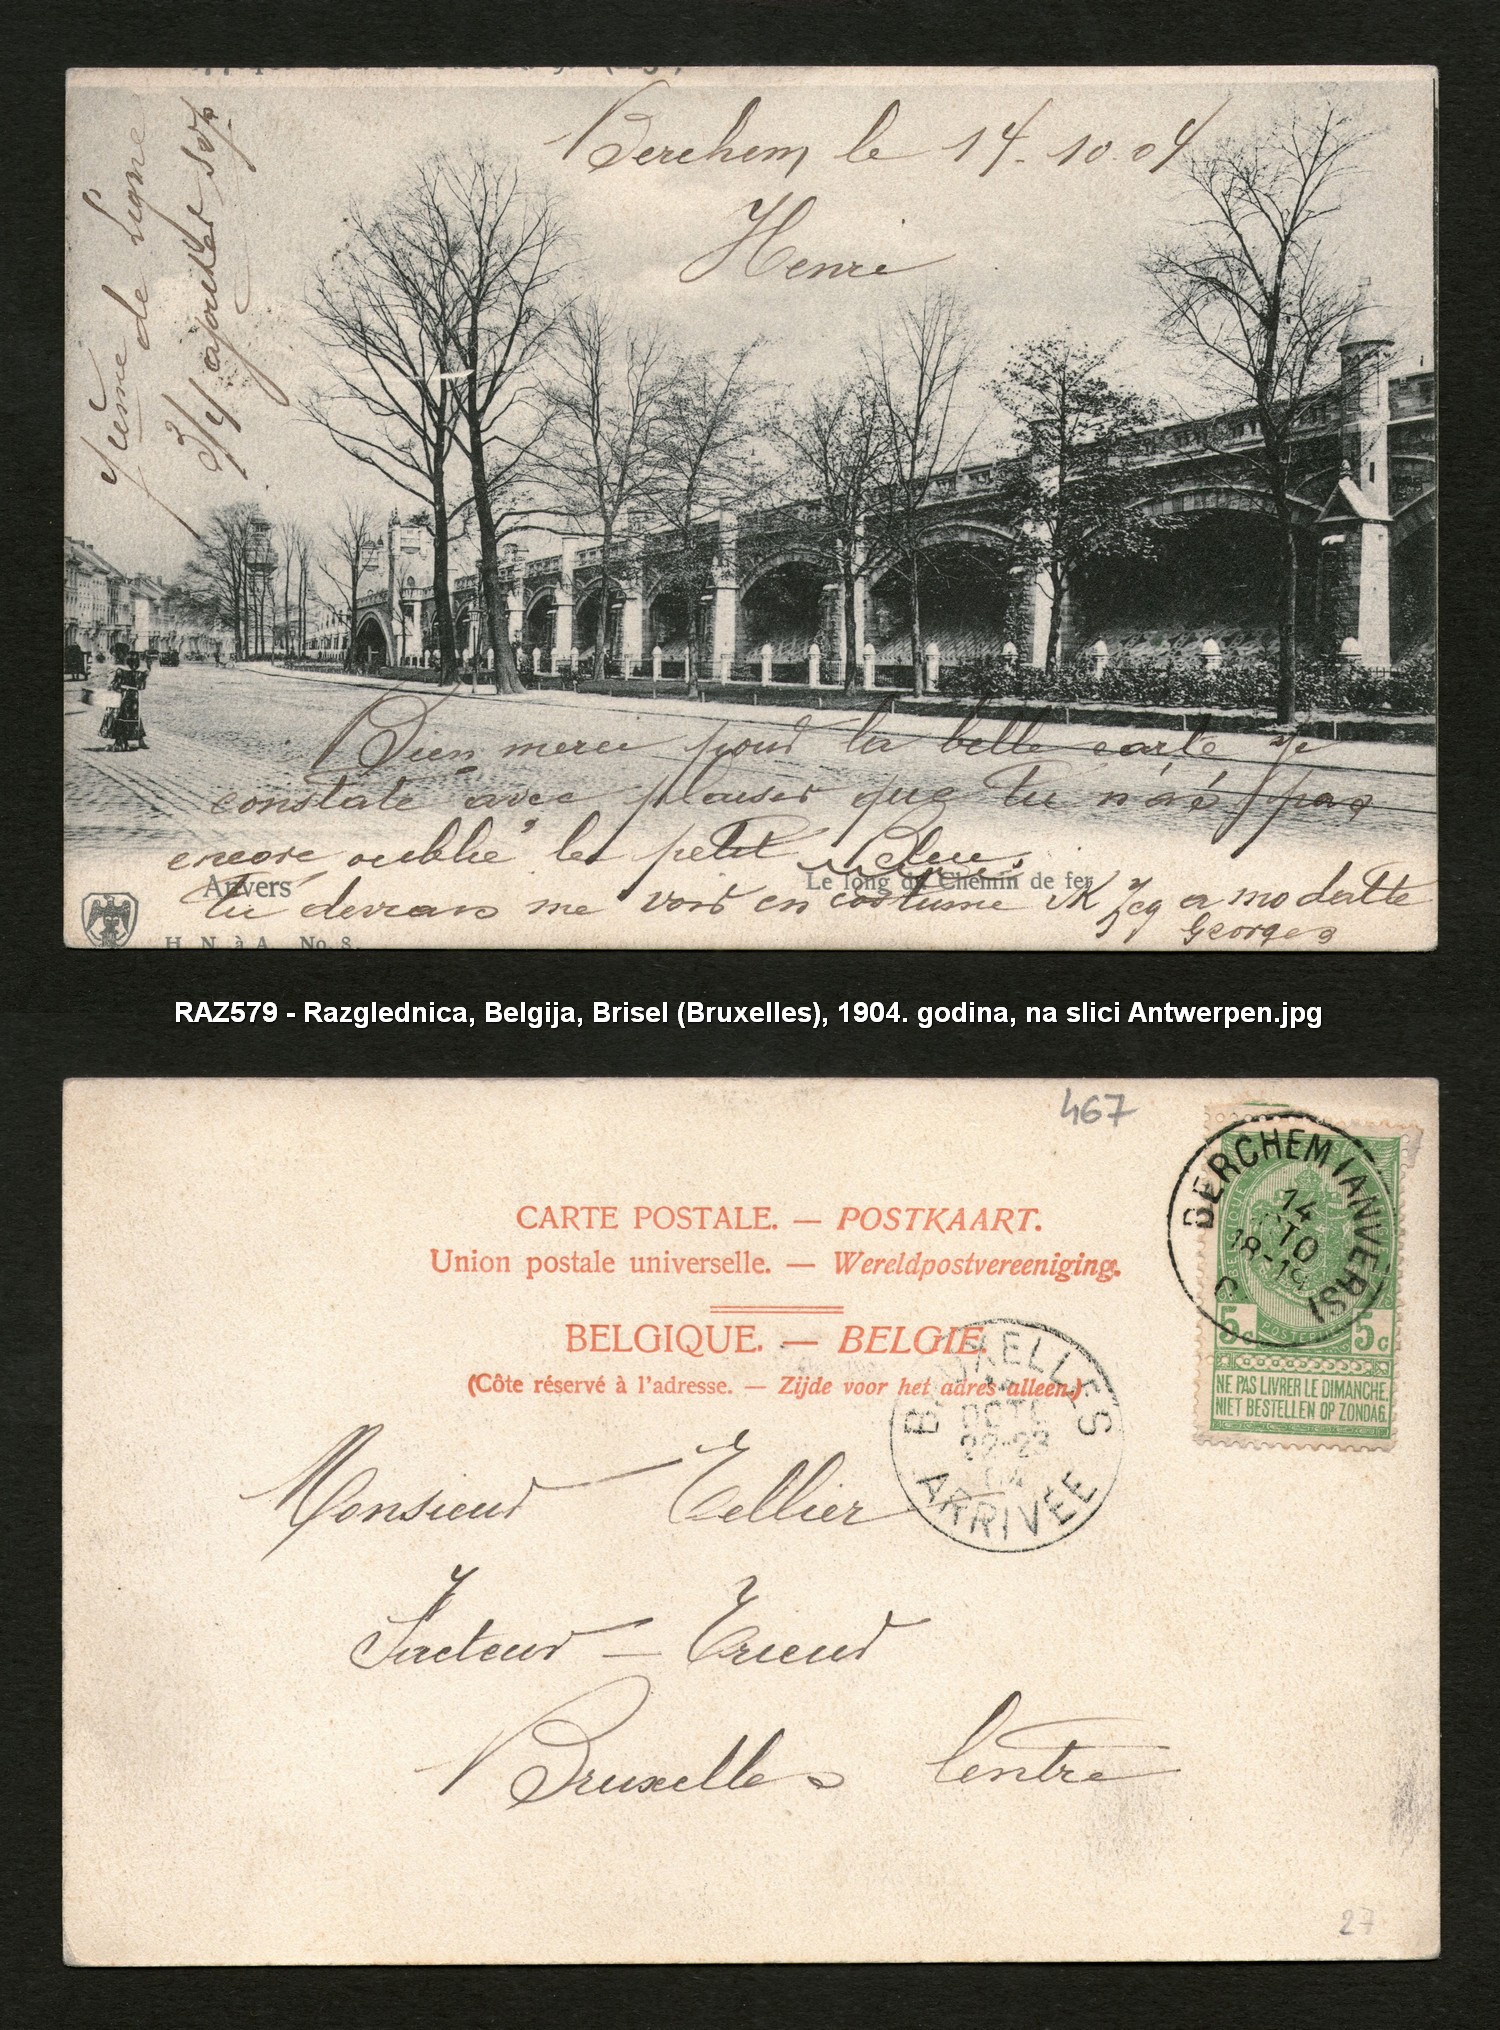 Berchem le 14-10-04
Henri
7eme de Ligne
3/4 ajouter svp.
Bien merci pour la belle carte je
constate avec plaiser que tu n'as pas
encore oublié le petit Bleu.
Tu devrais me voir en costume
Georges
Anvers
Le long du Chemin de fer
H. N. à A. No. 8.
RAZ579 - Razglednica, Belgija, Brisel (Bruxelles), 1904. godina, na slici Antwerpen.jpg
467
CARTE POSTALE. — POSTKAART.
Union postale universelle. — Wereldpostvereeniging.
BELGIQUE. — BELGIE.
(Côte réservé à l'adresse. — Zijde voor het adres alleen.)
BERCHEM (ANVERS)
14
10
18-19
C
5c 5c
POSTERIJ
NE PAS LIVRER LE DIMANCHE.
NIET BESTELLEN OP ZONDAG.
BRUXELLES
OCTO
22-23
04
ARRIVÉE
Monsieur Tellier
Facteur - Trieur
Bruxelles Centre
27